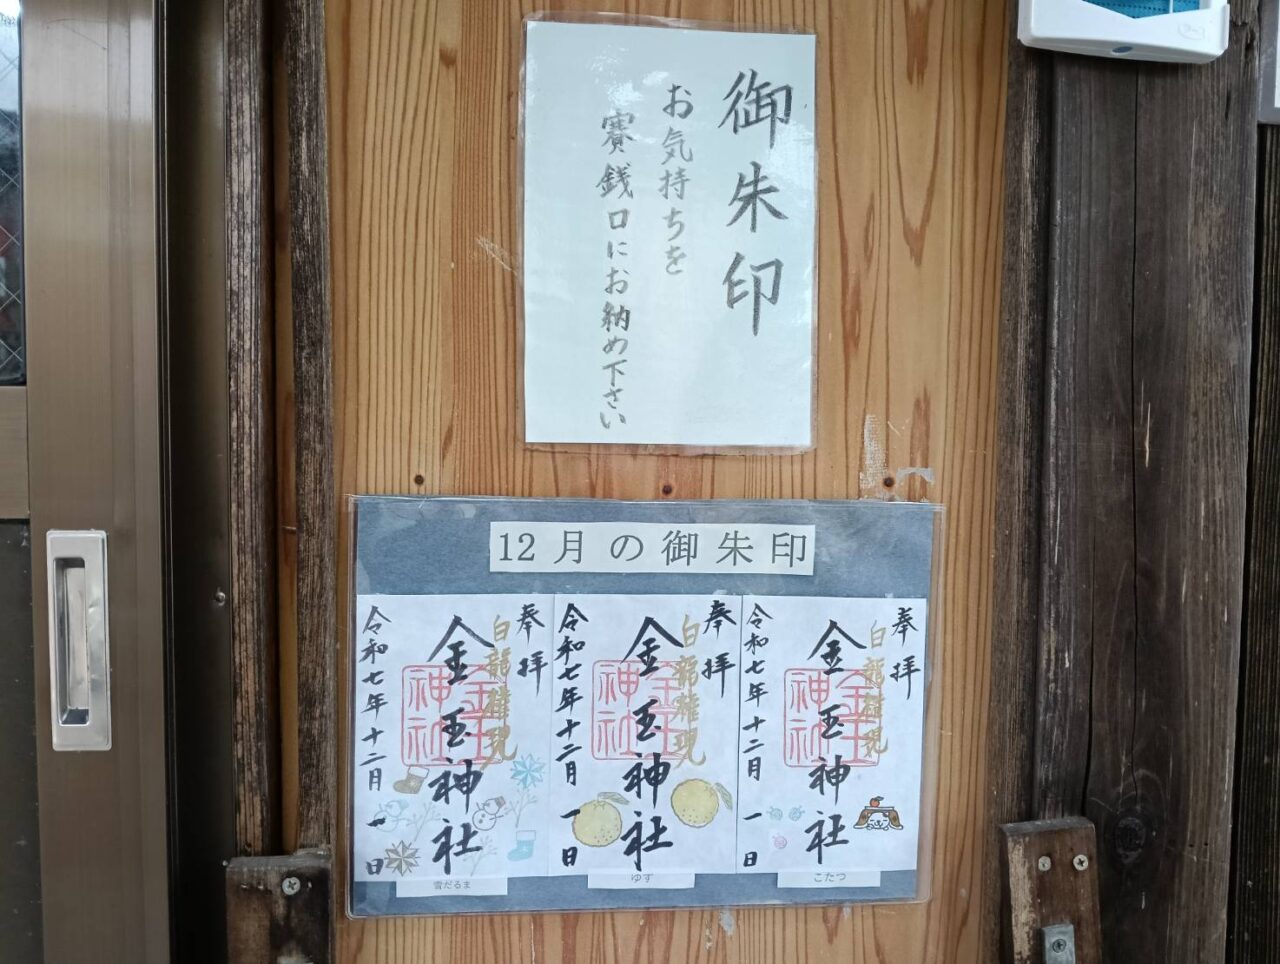 御朱印
お気持ちを
賽銭口にお納め下さい
12月の御朱印
奉拝
白龍権現
金玉神社
金玉神社
令和七年十二月一日
こたつ
奉拝
白龍権現
金玉神社
金玉神社
令和七年十二月一日
ゆず
奉拝
白龍権現
金玉神社
金玉神社
令和七年十二月一日
雪だるま